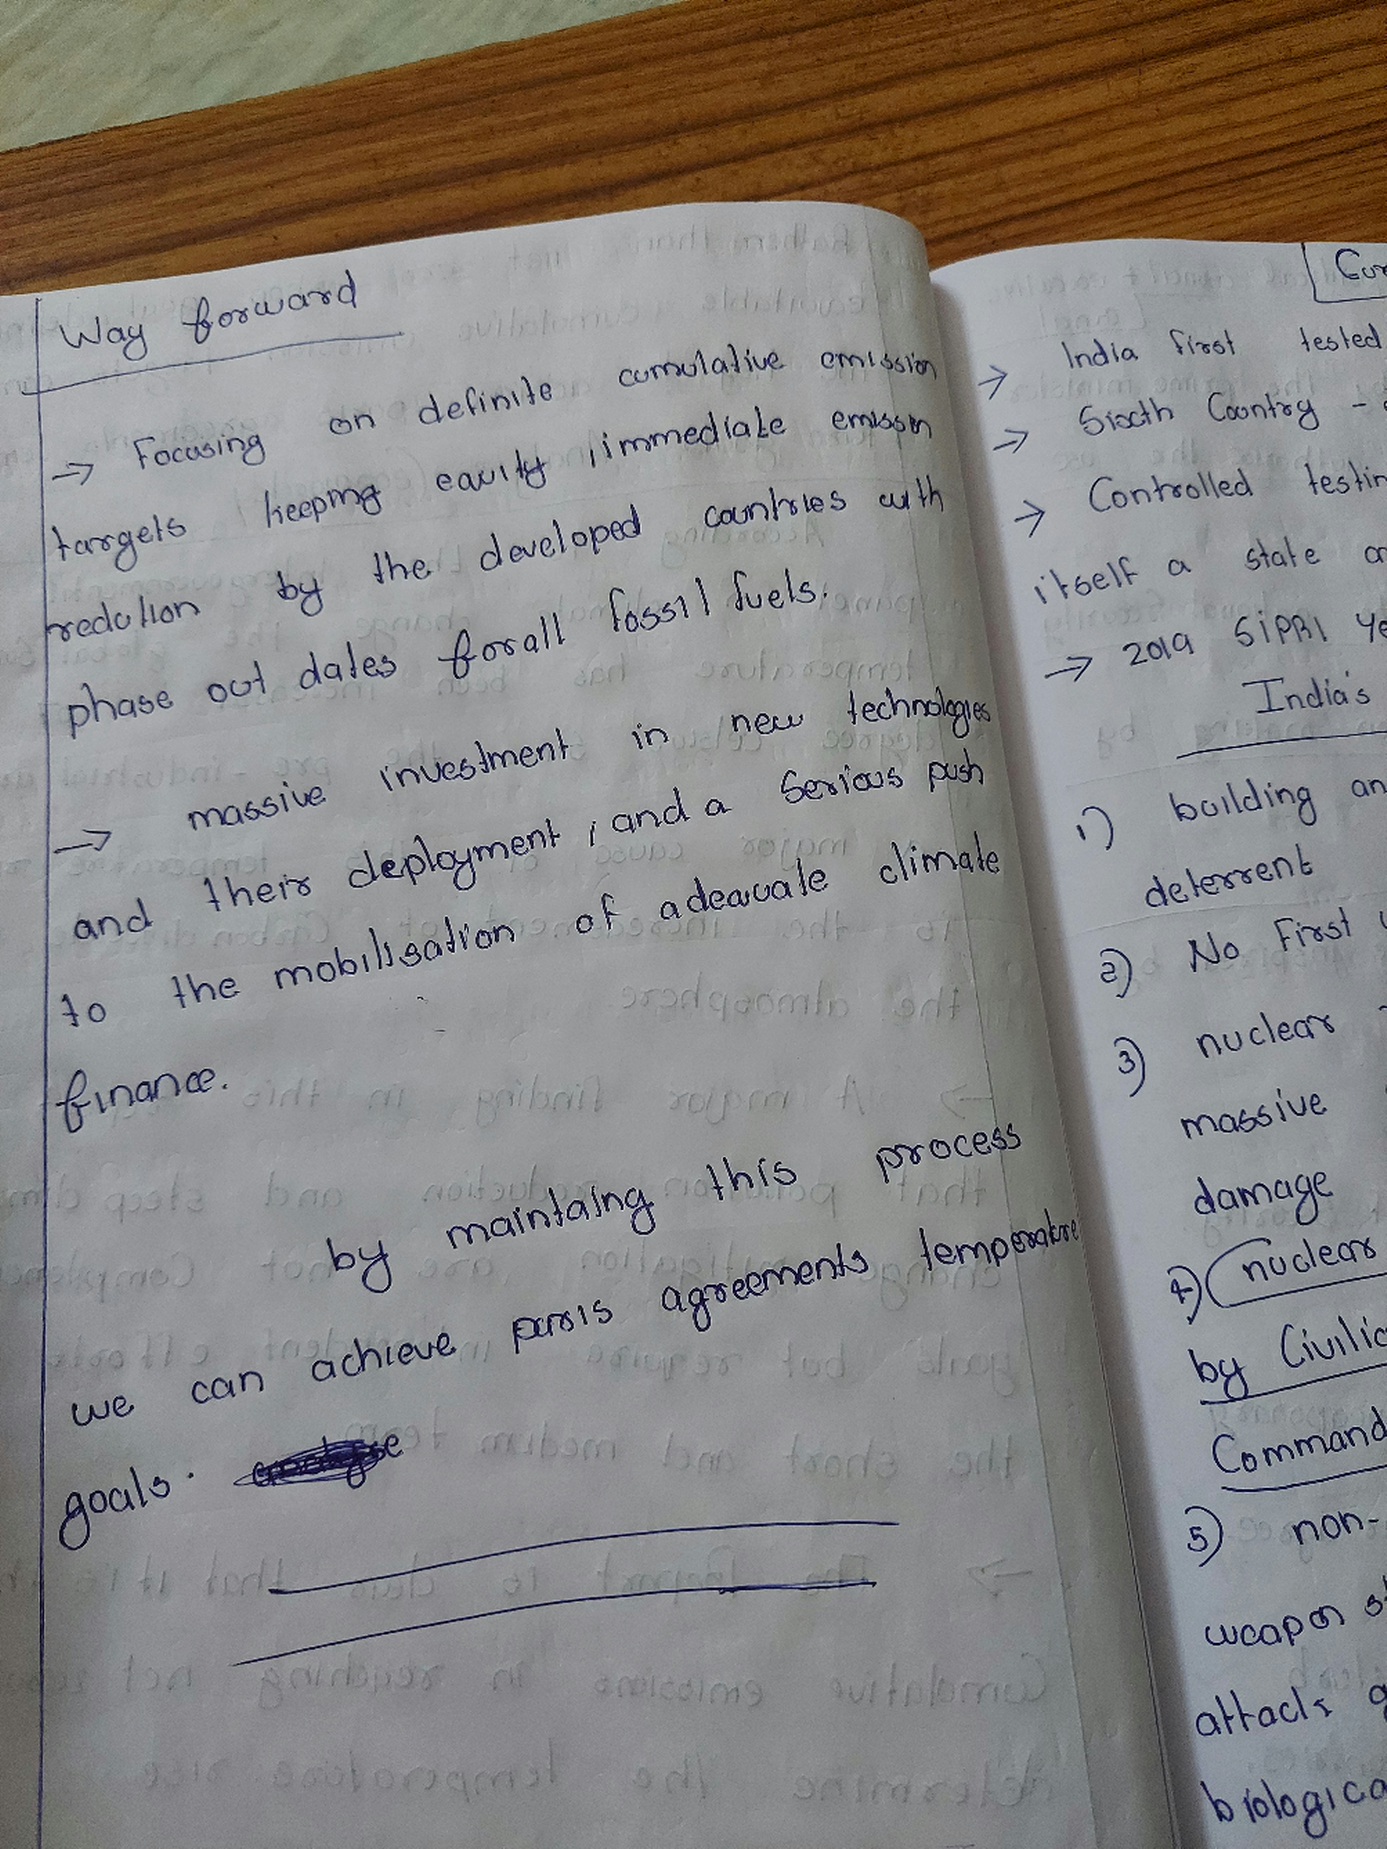 Way forward
→ Focusing on definite cumulative emission
targets keeping equity, immediate emission
redution by the developed countries with
phase out dates for all fossil fuels.
→ massive investment in new technologies
and their deployment, and a serious push
to the mobilisation of adequate climate
finance.
by maintaing this process
we can achieve paris agreements temperature
goals.
→ India first tested
→ Sixth Country -
→ Controlled testin
itself a state
→ 2019 SIPRI Ye
India's
1) building an
deterrent
2) No First
3) nuclear
massive
damage
4) nuclear
by Civilia
Command
5) non-
weapon st
attacks
biologica